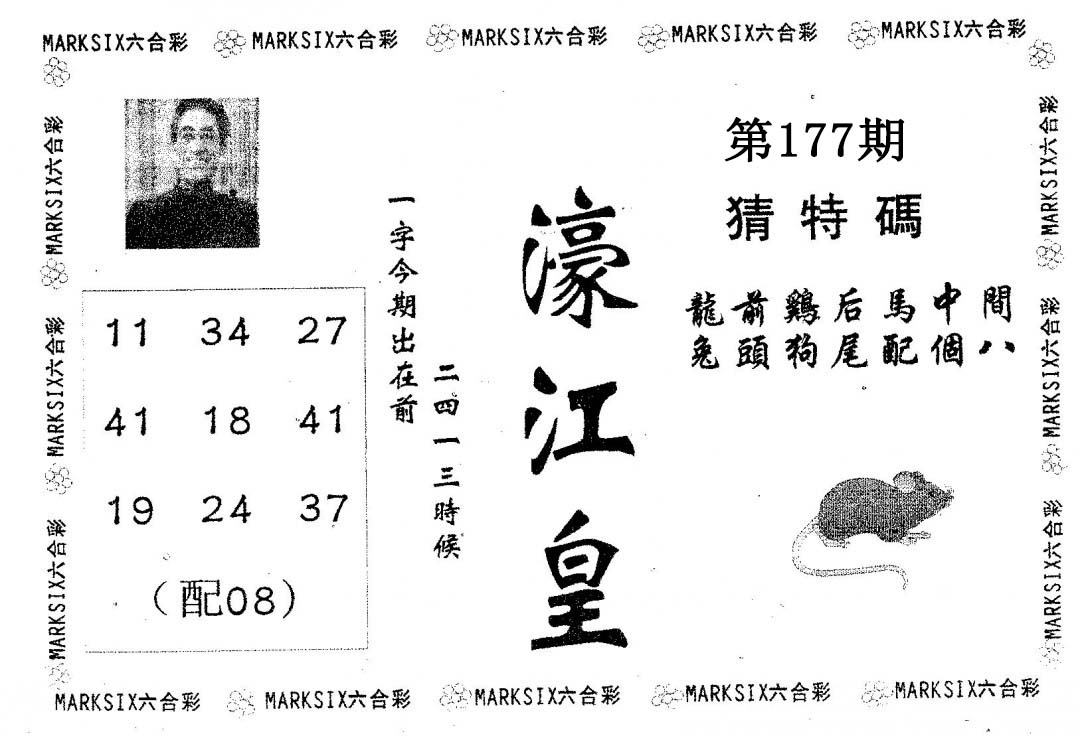 MARKSIX六合彩 MARKSIX六合彩 MARKSIX六合彩 MARKSIX六合彩 MARKSIX六合彩
MARKSIX六合彩
MARKSIX六合彩
MARKSIX六合彩
第177期
猜特碼
龍前鷄后馬中間
兔頭狗尾配個八
濠江皇
一字今期出在前
二四一三時候
11 34 27
41 18 41
19 24 37
(配08)
MARKSIX六合彩
MARKSIX六合彩
MARKSIX六合彩
MARKSIX六合彩 MARKSIX六合彩 MARKSIX六合彩 MARKSIX六合彩 MARKSIX六合彩